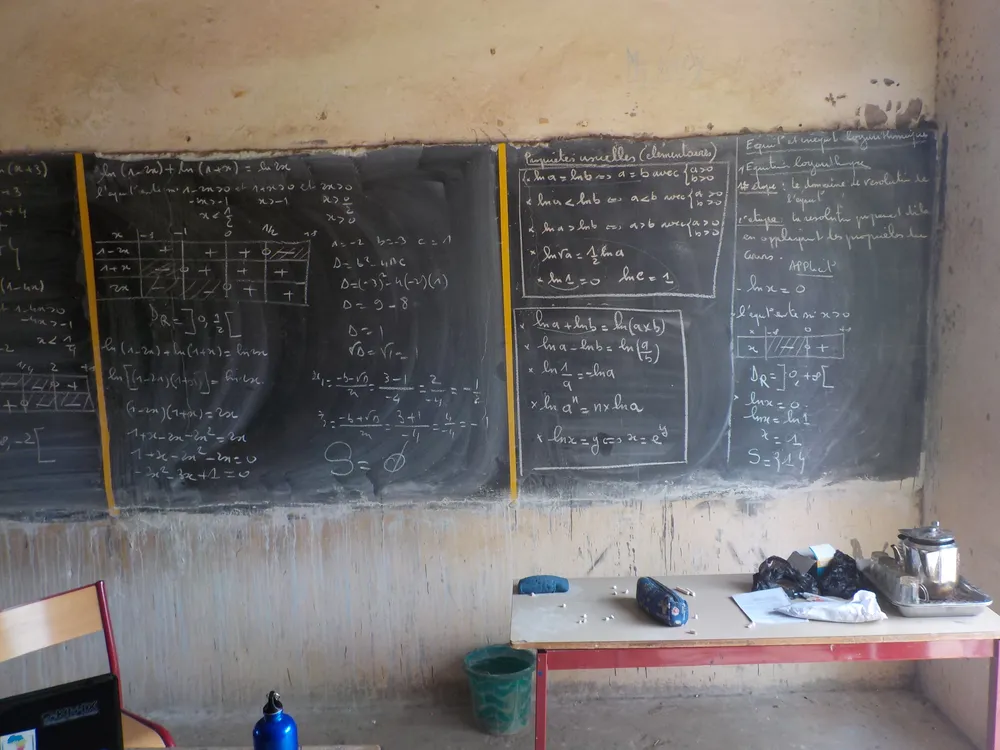 (x+3)
+3
+4
(1-4x)
-4x>-1
x<1/4
-2[
ln(1-2x)+ln(1+x)=ln2x
l'eqt existe ssi 1-2x>0 et 1+x>0 et 2x>0
-2x>-1 x>-1 x>0/2
x<1/2 x>0
x -∞ -1 0 1/2 +∞
1-2x + + + 
1+x + + +
2x + +
DR=]0,1/2[
ln(1-2x)+ln(1+x)=ln2x
ln[(1-2x)(1+x)]=ln2x
(1-2x)(1+x)=2x
1+x-2x-2x²=2x
1+x-2x²-2x=0
-2x²-3x+1=0
a=-2 b=-3 c=1
Δ=b²-4ac
Δ=(-3)²-4(-2)(1)
Δ=9-8
Δ=1
√Δ=√1=1
x₁=-b-√Δ/2a=3-1/-4=2/-4=-1/2
x₂=-b+√Δ/2a=3+1/-4=4/-4=-1
S=∅
Propriétés usuelles (élémentaires)
* lna=lnb ⇔ a=b avec {a>0 b>0
* lna<lnb ⇔ a<b avec {a>0 b>0
* lna>lnb ⇔ a>b avec {a>0 b>0
* ln√a=1/2lna
* ln1=0 lne=1
* lna+lnb=ln(axb)
* lna-lnb=ln(a/b)
* ln1/a=-lna
* lnaⁿ=nxlna
* lnx=y⇔x=e^y
Equat° et inéquat° logarithmique
Equation logarithmique
1ère étape: le domaine de résolution de
l'équat°
2e étape: la résolution proprement dite
en appliquant les propriétés du
cours.
Applicat°
lnx=0
l'eqt existe ssi x>0
x -∞ 0 +∞
x +
DR=]0,+∞[
lnx=0
lnx=ln1
x=1
S={1}